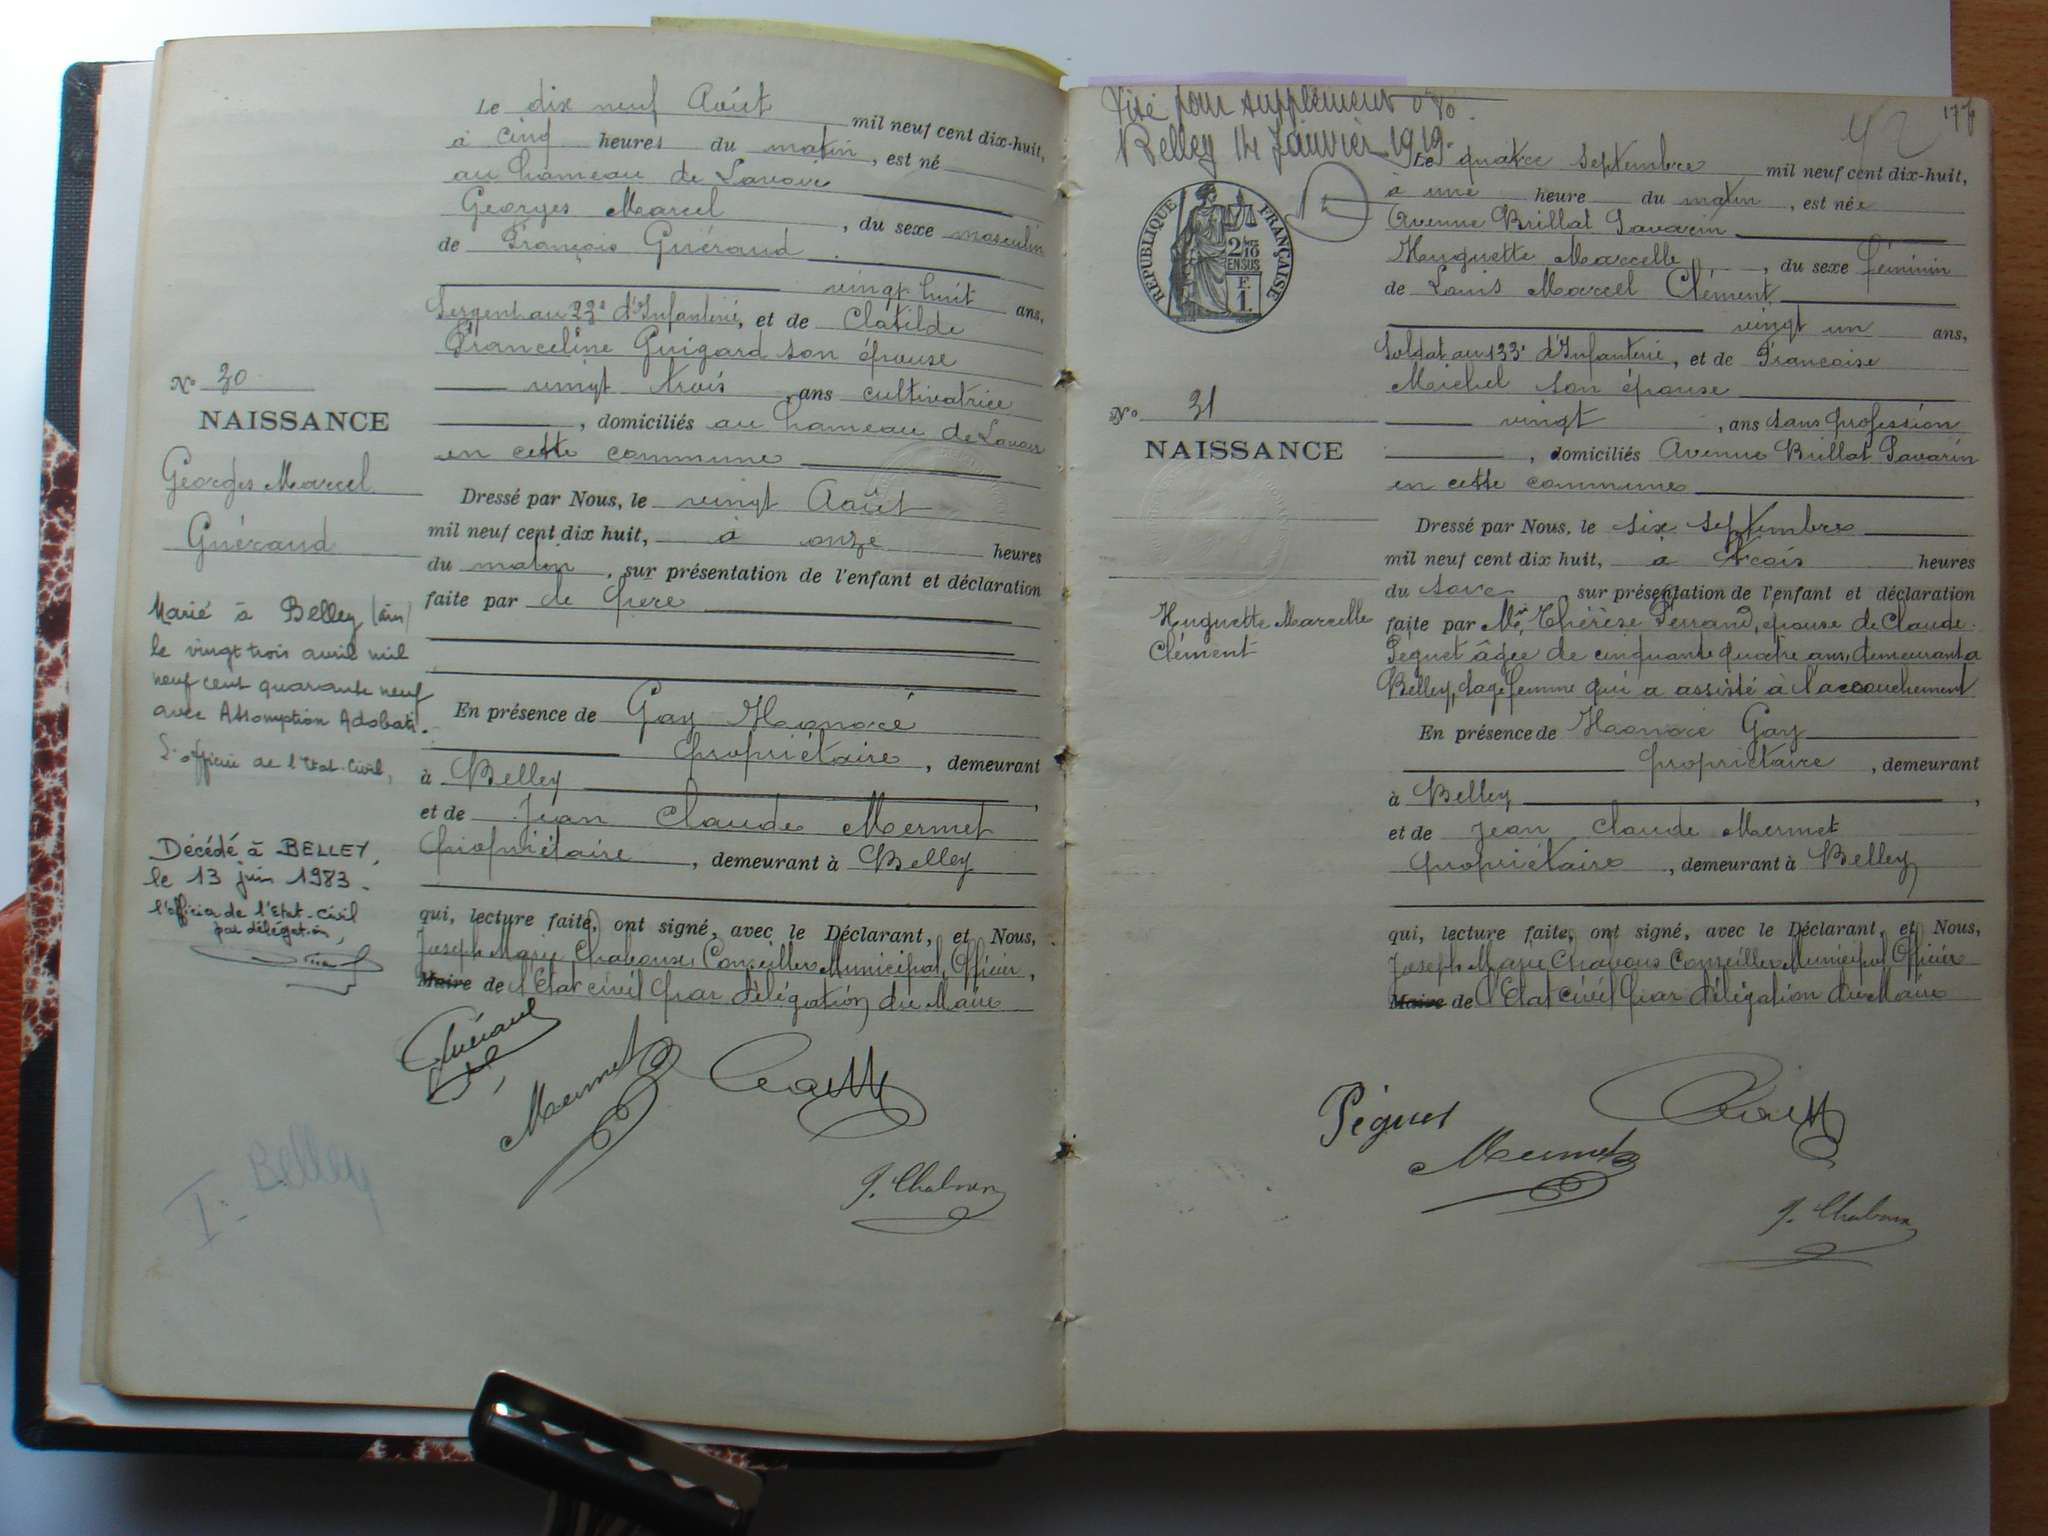 Le dix neuf Août mil neuf cent dix-huit,
à cinq heures du matin, est né
au hameau de Lavoir
Georges Marcel, du sexe masculin
de François Guéraud
vingt huit ans,
Sergent au 23e d'Infanterie, et de Clotilde
Franceline Guigard son épouse
vingt trois ans cultivatrice
, domiciliés au hameau de Lavoir
en cette commune
Dressé par Nous, le vingt Août
mil neuf cent dix huit, à onze heures
du matin, sur présentation de l'enfant et déclaration
faite par le père
En présence de Gay Honoré
propriétaire, demeurant
à Belley,
et de Jean Claude Mermet
propriétaire, demeurant à Belley
qui, lecture faite, ont signé, avec le Déclarant, et Nous,
Joseph Marie Chaboux, Conseiller Municipal, Officier,
Maire de l'Etat civil par délégation du Maire
Guéraud
Mermet
J. Chaboux
No 30
NAISSANCE
Georges Marcel
Guéraud
Marié à Belley (Ain)
le vingt trois avril mil
neuf cent quarante neuf
avec Assomption Adobati.
L'officier de l'Etat-Civil,
Décédé à BELLEY,
le 13 juin 1983.
l'officier de l'Etat-civil
par délégation,
I: Belley
Visé pour supplément
Belley 14 Janvier 1919.
42
REPUBLIQUE FRANÇAISE
2/10
EN SUS
F.
1.
Le quatre septembre mil neuf cent dix-huit,
à une heure du matin, est née
Avenue Brillat Savarin
Huguette Marcelle, du sexe féminin
de Louis Marcel Clément
vingt un ans,
Soldat au 133e d'Infanterie, et de Françoise
Michel son épouse
vingt, ans sans profession
, domiciliés Avenue Brillat Savarin
en cette commune
Dressé par Nous, le six septembre
mil neuf cent dix huit, à trois heures
du soir, sur présentation de l'enfant et déclaration
faite par Me Thérèse Perrand, épouse de Claude
Peguet âgée de cinquante quatre ans, demeurant à
Belley, sage femme qui a assisté à l'accouchement
En présence de Honoré Gay
propriétaire, demeurant
à Belley,
et de Jean Claude Mermet
propriétaire, demeurant à Belley
qui, lecture faite, ont signé, avec le Déclarant, et Nous,
Joseph Marie Chaboux Conseiller Municipal Officier
Maire de l'Etat civil par délégation du Maire
Péguet
Mermet
J. Chaboux
No 31
NAISSANCE
Huguette Marcelle
Clément